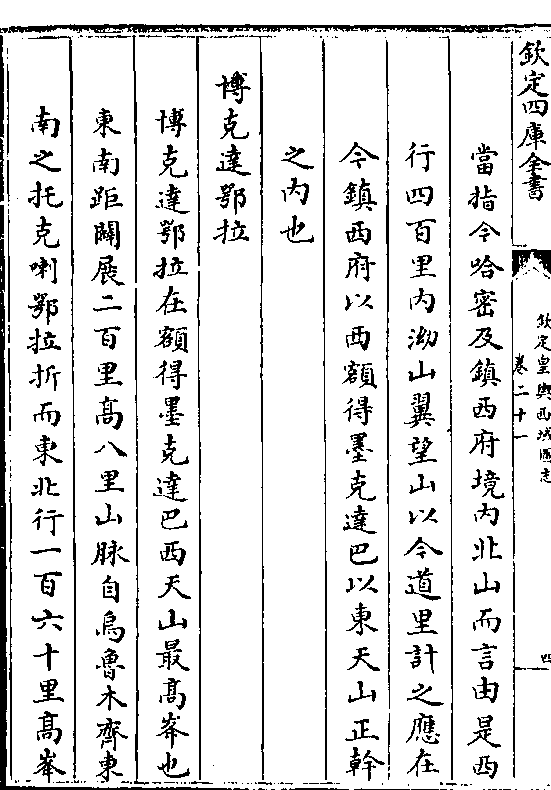 欽定四庫全書
欽定皇輿西域圖志
卷二十一
四
當指今哈密及鎮西府境内北山而言由是西
行四百里内泑山翼望山以今道里計之應在
今鎮西府以西額得墨克達巴以東天山正幹
之内也
博克達鄂拉
博克達鄂拉在額得墨克達巴西天山最高峯也
東南距闢展二百里高八里山脉自烏魯木齊東
南之托克喇鄂拉折而東北行一百六十里高峯